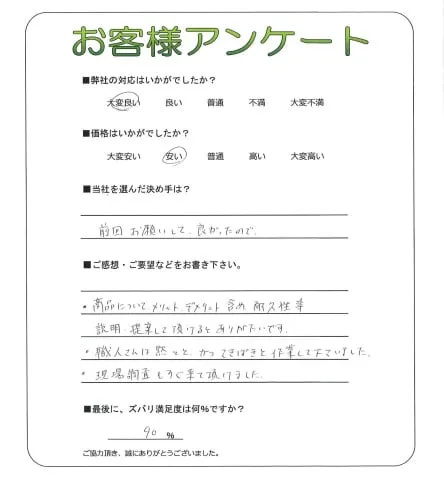 お客様アンケート
■弊社の対応はいかがでしたか？
大変良い 良い 普通 不満 大変不満
■価格はいかがでしたか？
大変安い 安い 普通 高い 大変高い
■当社を選んだ決め手は？
前回お願いして、良かったので、
■ご感想・ご要望などをお書き下さい。
・商品について、メリット、デメリット含め、耐久性等
説明、提案して頂けるとありがたいです。
・職人さんは黙々と、かつてきぱきと作業して下さいました。
・現場調査もすぐ来て頂けました。
■最後に、ズバリ満足度は何％ですか？
90 %
ご協力頂き、誠にありがとうございました。